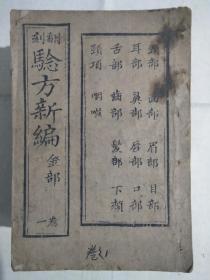 頭部 面部 眉部 目部
耳部 鼻部 唇部 口部
舌部 齒部 髮部 下頦
頸項 咽喉
驗方新編
全部
卷一
卷1